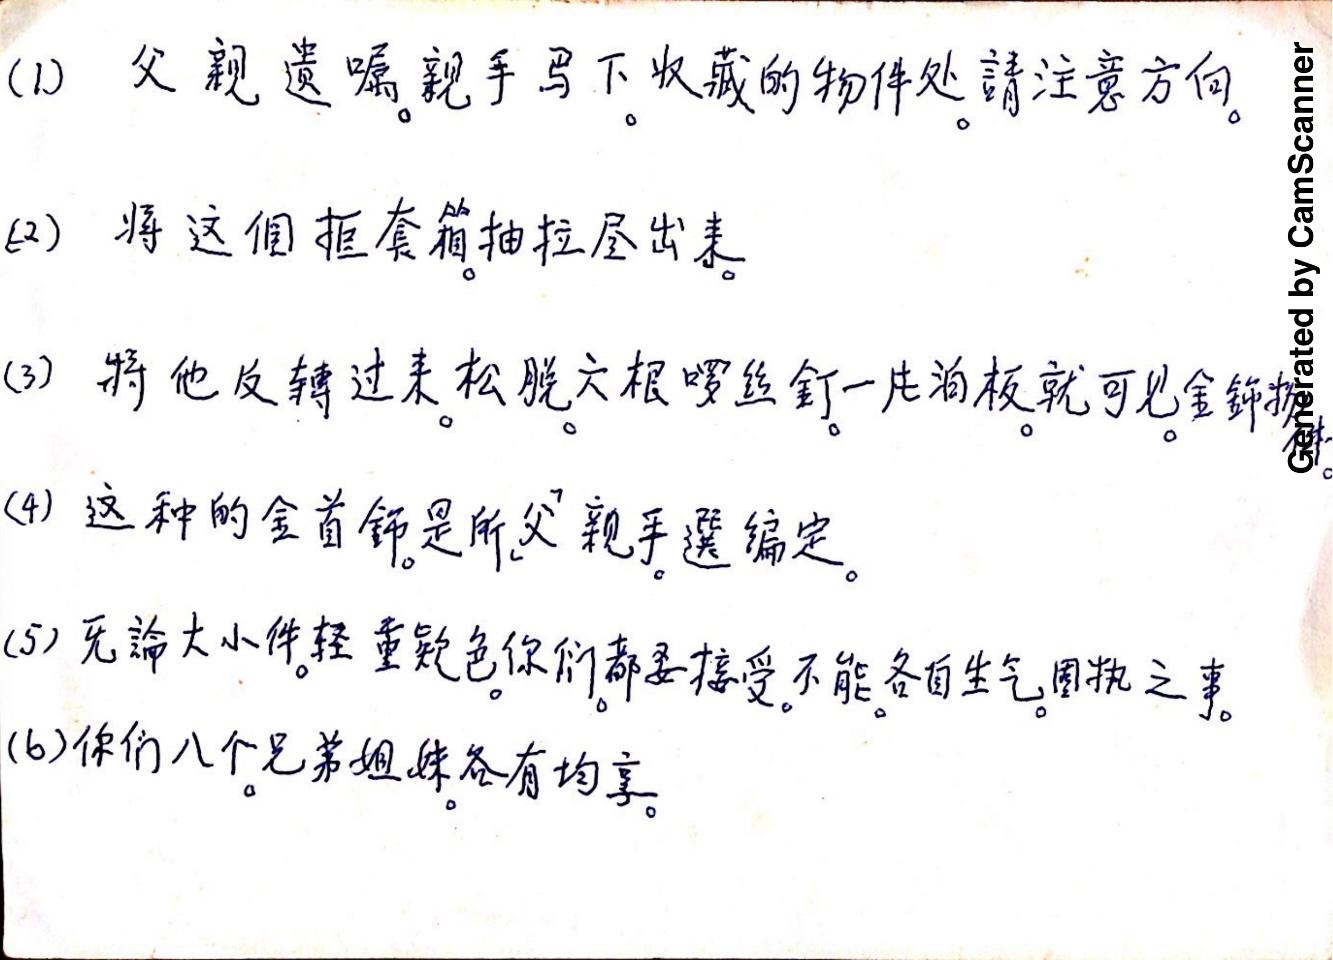 (1) 父親遗嘱。親手写下。收藏的物件处。請注意方向。
(2) 将这個拒套箱。抽拉尽出来。
(3) 将他反轉过来。松脱。六根啰丝釘。一片泊板。就可见。金飾物件。
(4) 这种的金首飾。是所「父」親手。選编定。
(5) 无論大小件。轻重欵色。你们。都要接受。不能。各自生气。固执之事。
(6) 你们八个。兄弟姐妹。各有均享。
Generated by CamScanner